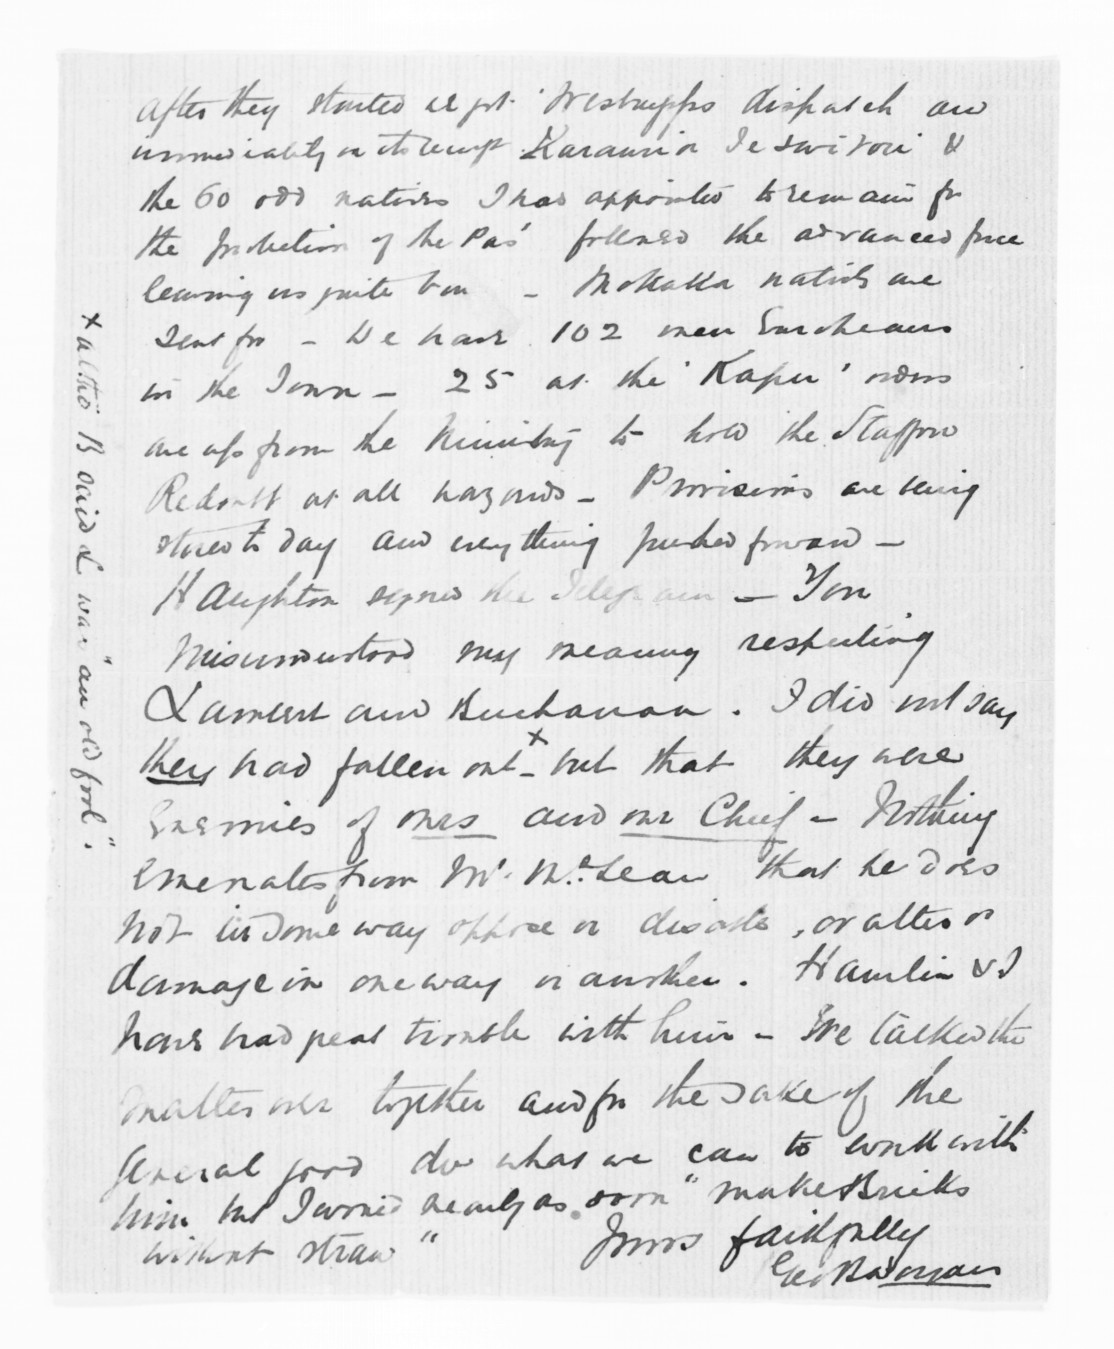 after they started we got Westrupps dispatch and
immediately on its receipt Karauria &
the 60 odd natives I had appointed to remain for
the protection of the Pas' followed the advanced force
leaving us quite bare - Mohaka natives are
sent for - We have 102 men Europeans
in the Town - 25 at the 'Kapu' orders
are up from the Ministry to hold the Stafford
Redoubt at all hazards - Provisions are being
stored to day and everything pushed forward -
Haughton signed the Telegram - You
misunderstood my meaning respecting
Lambert and Buchanan. I did not say
they had fallen out x - but that they were
Enemies of ours and our Chief - Nothing
emenates from Mr. McLean that he does
not in some way oppose or , or alter or
damage in one way or another. Hamlin & I
have had great trouble with him - We talked the
matter over together and for the sake of the
general good do what we can to work with
him but I would nearly as soon "make Bricks
without straw"
Yours faithfully
x altho' B said L was "an old fool".